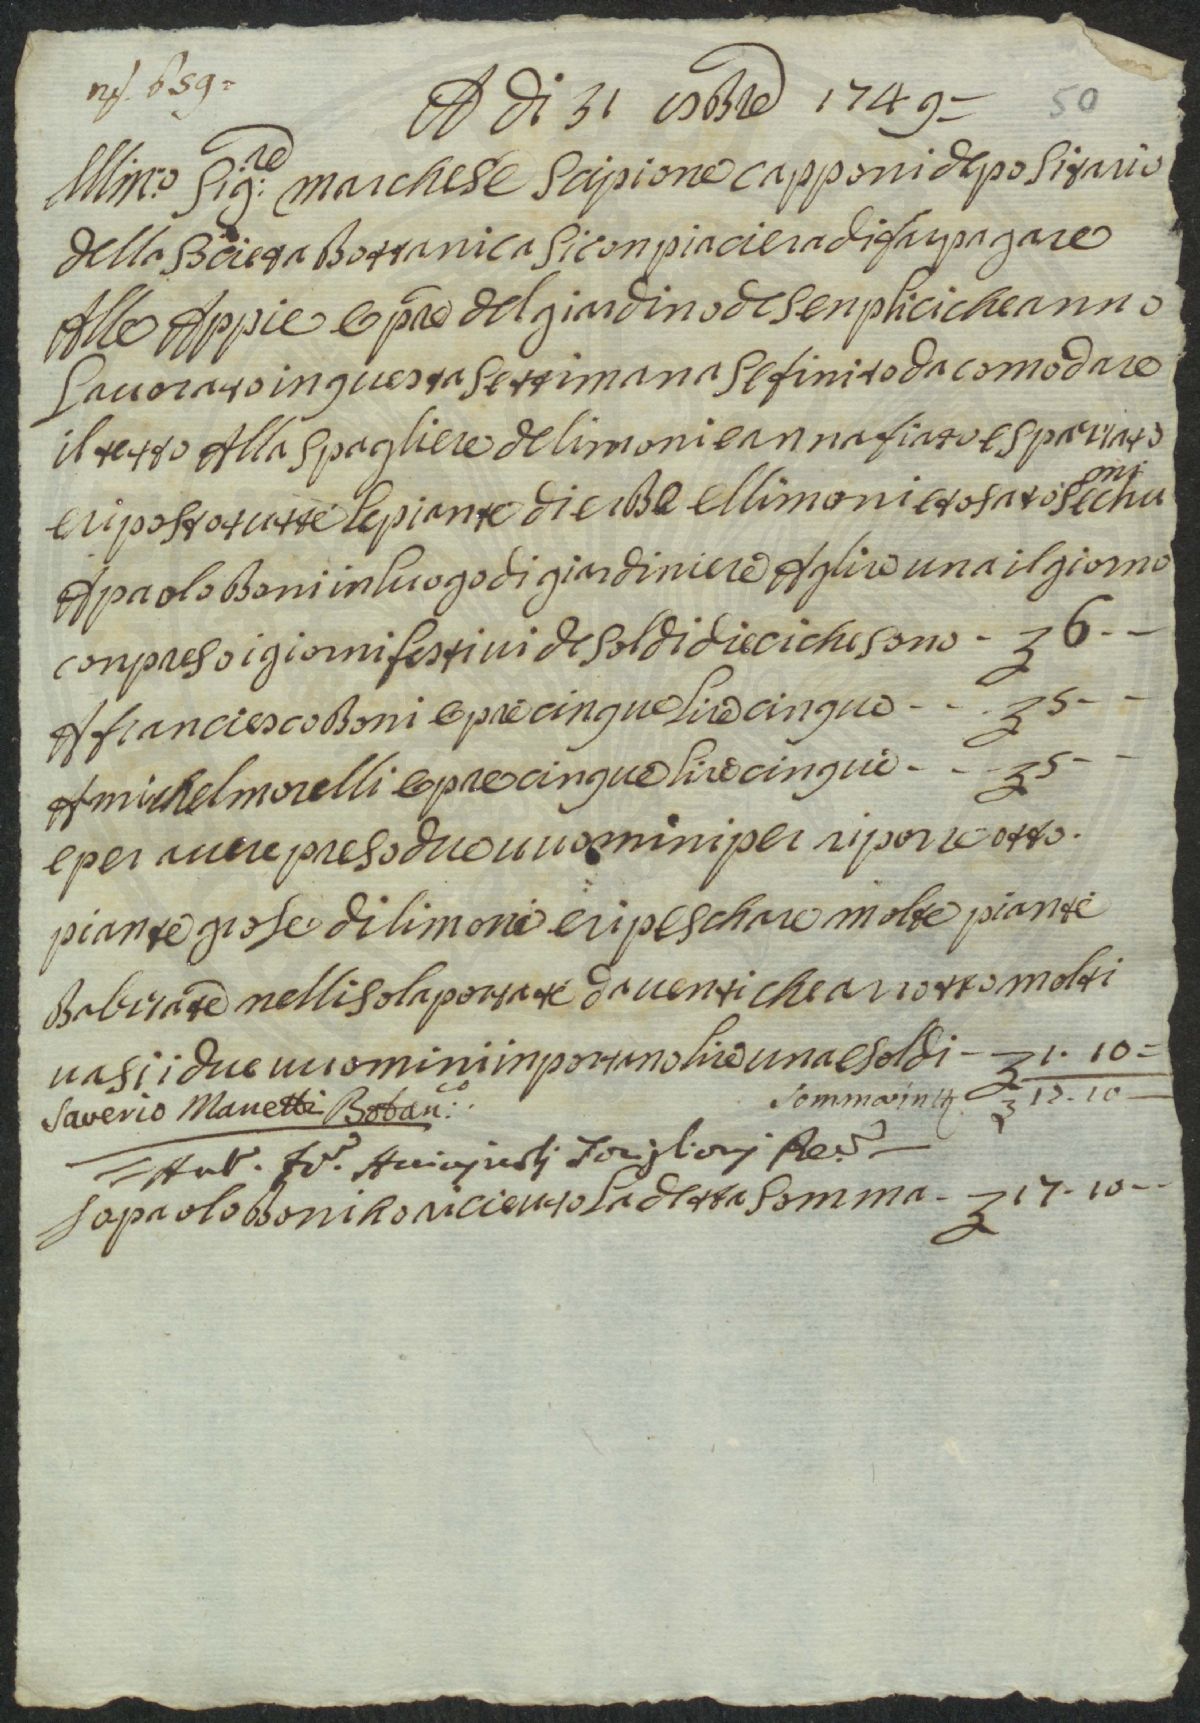 A di 31 8bre 1749=
50
Illmo Sigre: marchese Scipione capponi depositario
della Societa Bottanica si conpiaciera di far pagare
Alle Appie opre del giardino de senplici che anno
Lauorato in questa settimana se finito da comodare
il tetto Alla spagliere de limoni e annafiato e spa
e riposto tutte le piante di erbe e llimoni e tosato
A paolo Boni in luogo di giardiniere A lire una il giorno
conpreso i giorni festiui de soldi dieci che sono - 6 - -
A franciesco Boni opre cinque Lire cinque - - - 5 - -
A michel morelli opre cinque lire cinque - - - 5 - -
e per auere preso due uuomini per riporre otto
piante grose di limoni e ripeschare molte piante
nelli sola portate da uenti che an rotto molti
uasi i due uuomini inportano lire una e soldi - 1. 10 =
Saverio Manetti Botan:co
Sommario 17. 10
Io paolo Boni ho riceuto La detta Somma - 17 - 10 - -